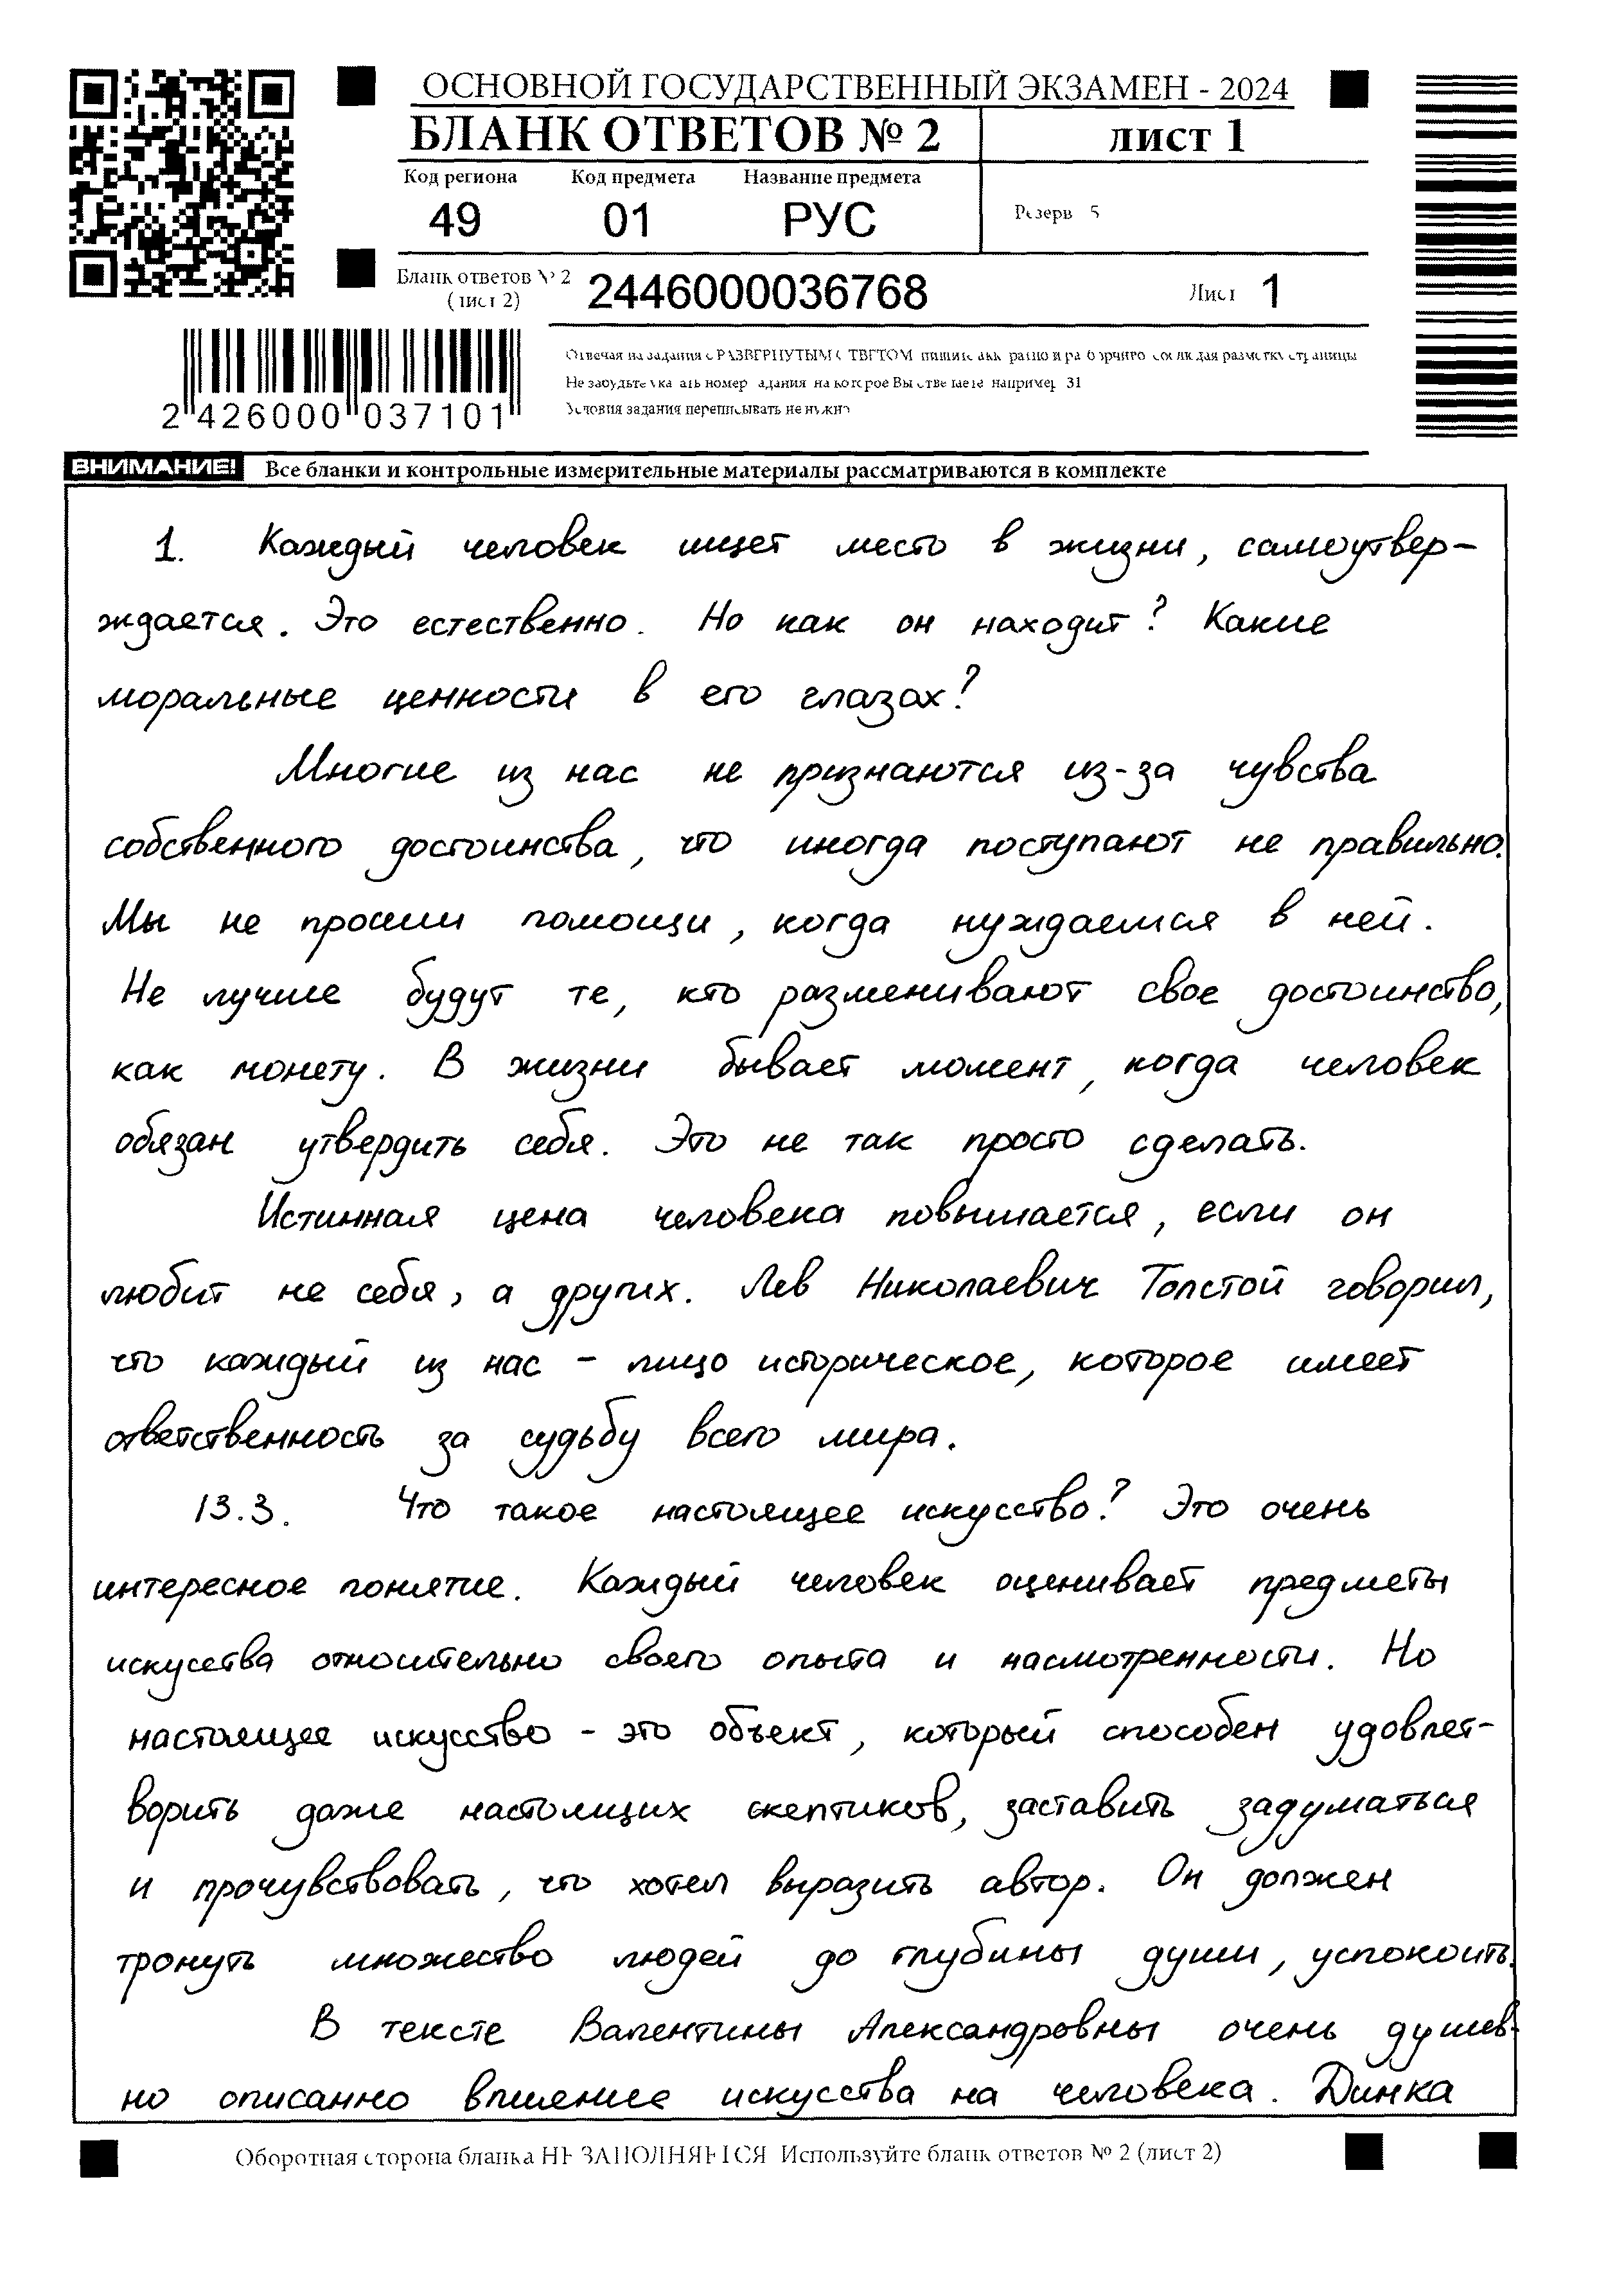 ОСНОВНОЙ ГОСУДАРСТВЕННЫЙ ЭКЗАМЕН - 2024
БЛАНК ОТВЕТОВ № 2
лист 1
Код региона Код предмета Название предмета
49 01 РУС
Резерв 5
Бланк ответов № 2
(лист 2)
2446000036768
Лист 1
2 426000 037101
Отвечая на задания с РАЗВЕРНУТЫМ ОТВЕТОМ пишите аккуратно и разборчиво соблюдая разметку страницы
Не забудьте указать номер задания на которое Вы отвечаете например 31
Условия задания переписывать не нужно
ВНИМАНИЕ! Все бланки и контрольные измерительные материалы рассматриваются в комплекте
1. Каждый человек ищет место в жизни, самоутвер-
ждается. Это естественно. Но как он находит? Какие
моральные ценности в его глазах?
Многие из нас не признаются из-за чувства
собственного достоинства, что иногда поступают не правильно.
Мы не просим помощи, когда нуждаемся в ней.
Не лучше будут те, кто разменивают свое достоинство,
как монету. В жизни бывает момент, когда человек
обязан утвердить себя. Это не так просто сделать.
Истинная цена человека повышается, если он
любит не себя, а других. Лев Николаевич Толстой говорил,
что каждый из нас - лицо историческое, которое имеет
ответственность за судьбу всего мира.
13.3. Что такое настоящее искусство? Это очень
интересное понятие. Каждый человек оценивает предметы
искусства относительно своего опыта и насмотренности. Но
настоящее искусство - это объект, который способен удовлет-
ворить даже настоящих скептиков, заставить задуматься
и прочувствовать, что хотел выразить автор. Он должен
тронуть множество людей до глубины души, успокоить.
В тексте Валентины Александровны очень душев-
но описанно влияние искусства на человека. Динка
Оборотная сторона бланка НЕ ЗАПОЛНЯЕТСЯ Используйте бланк ответов № 2 (лист 2)